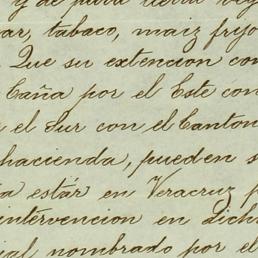 y de pura tierra veg
ar, tabaco, maiz frijo
Que su extencion con
Caña por el Este con
el Sur con el Canton
hacienda, pueden s
a estár en Veracruz p
intervencion en dich
ial nombrado por el